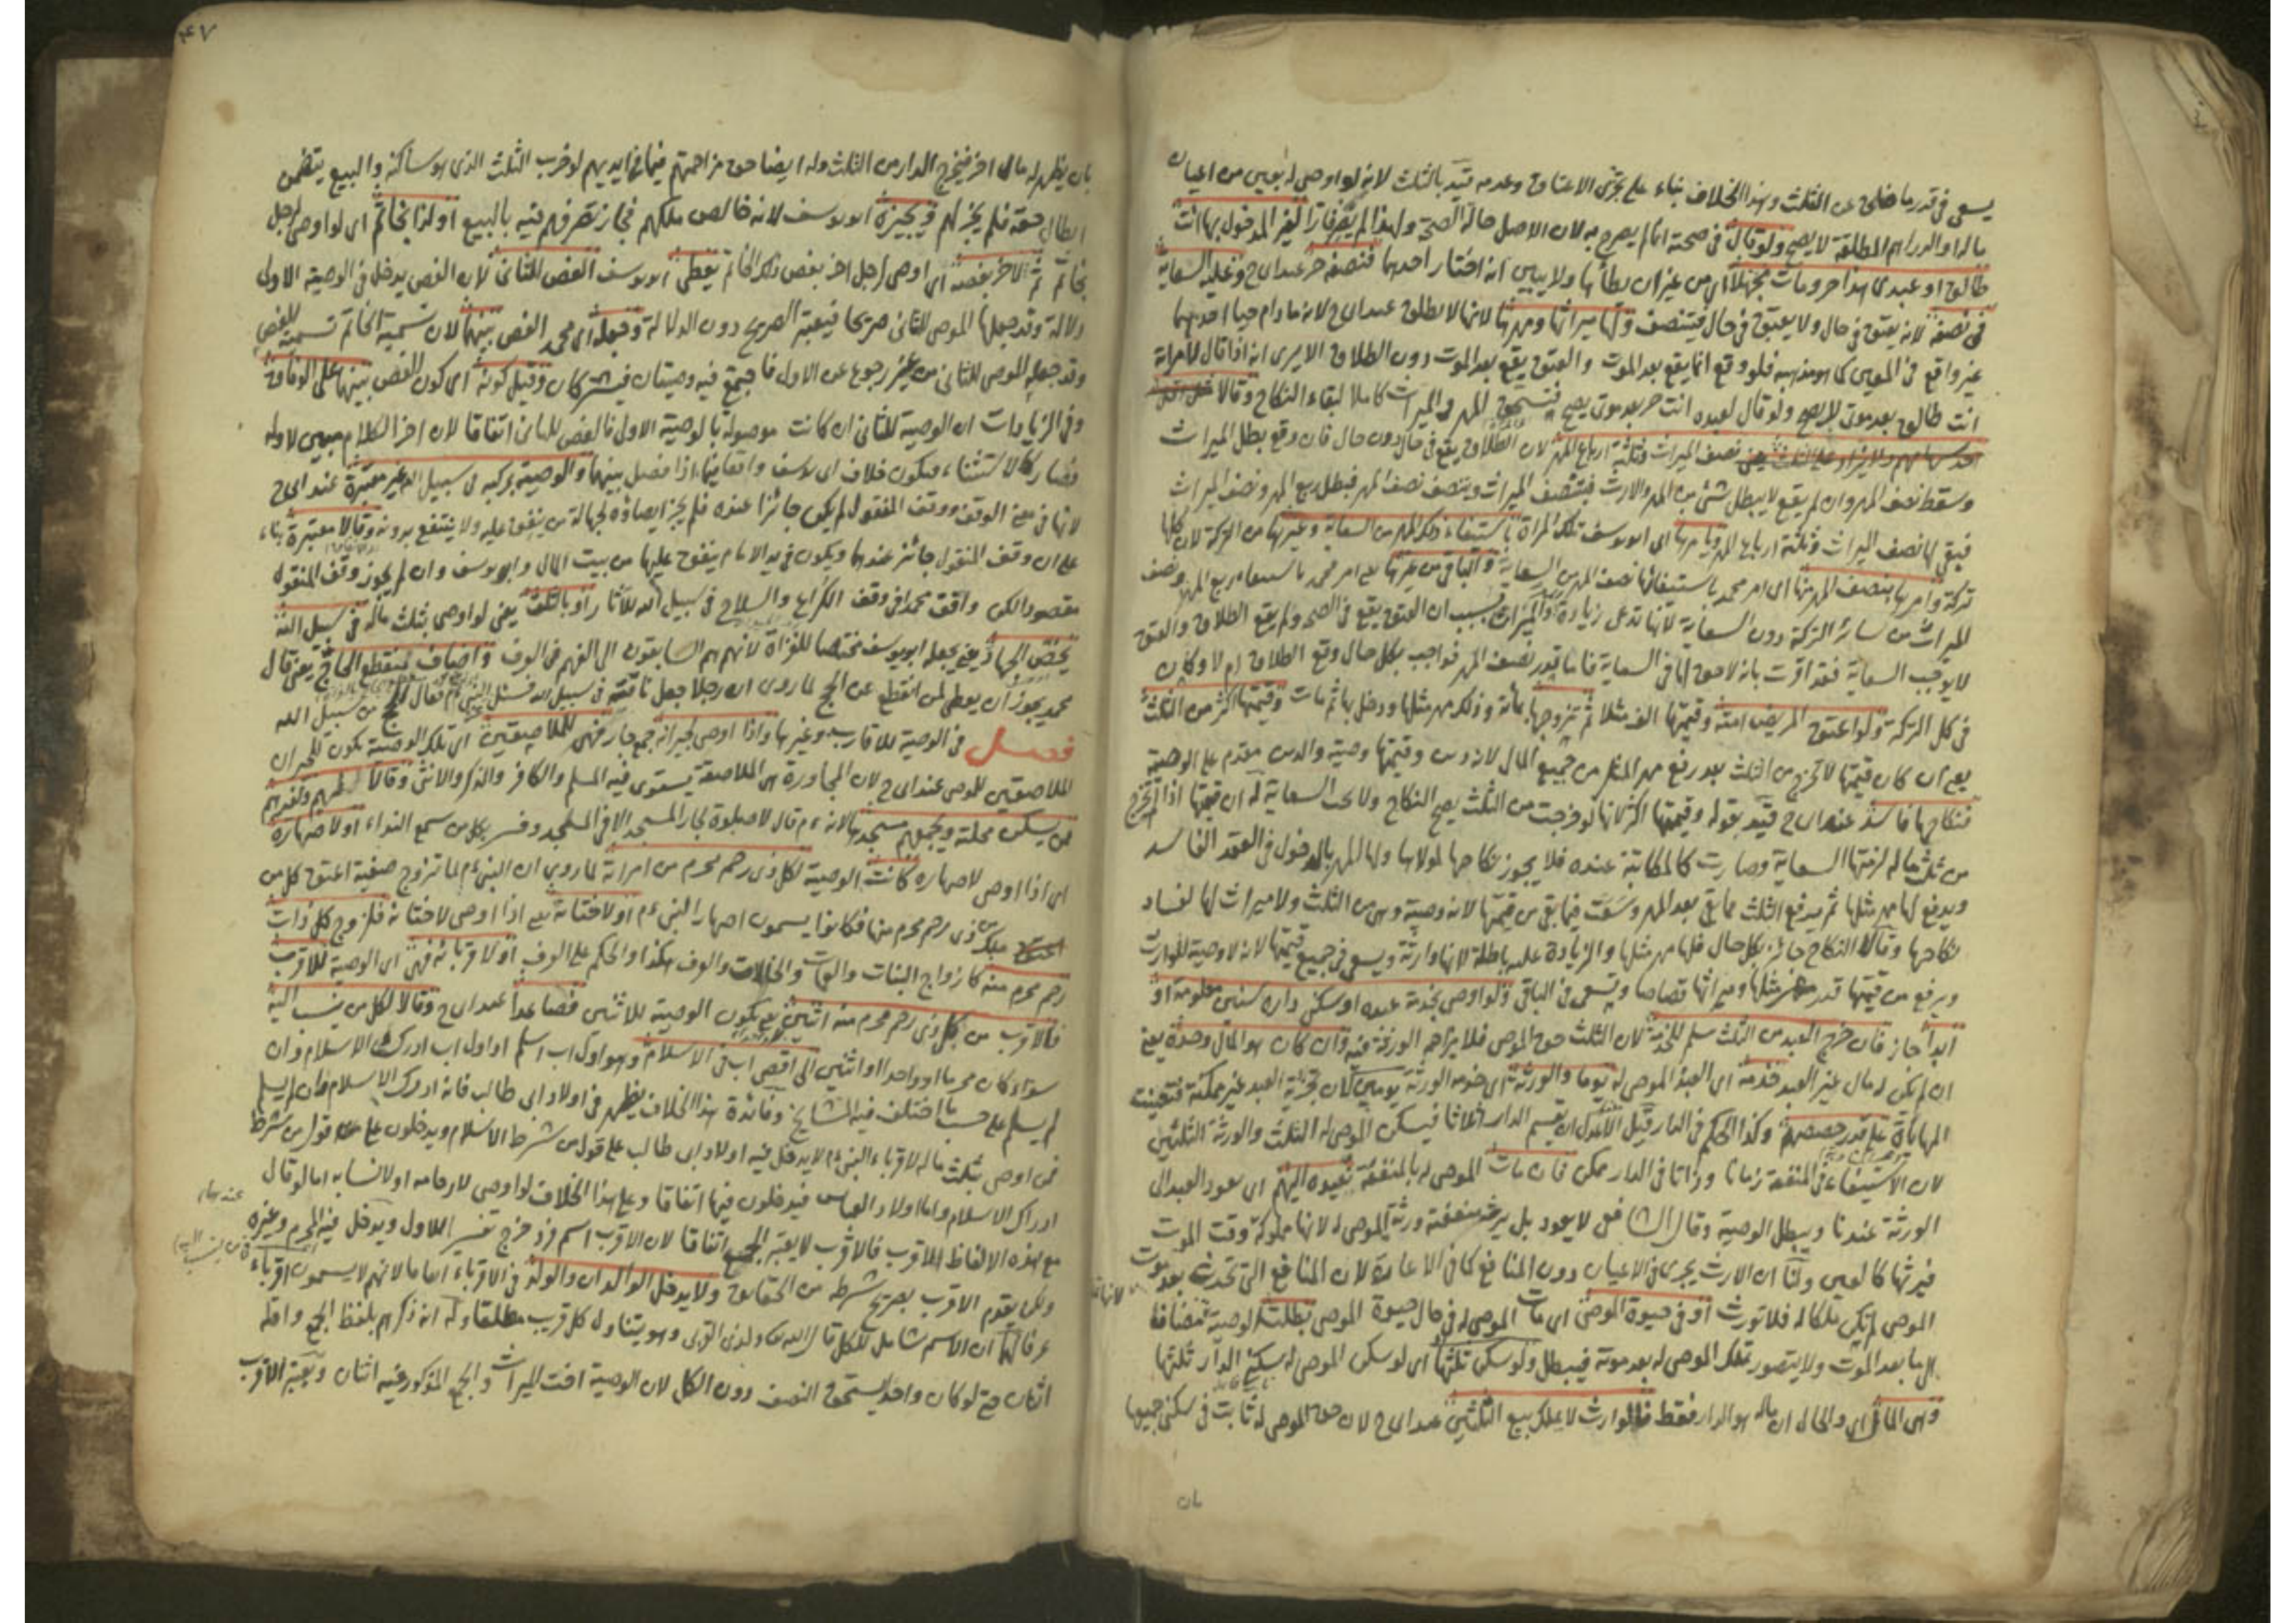 يسعى في قدر ما فضل عن الثلث وهذا الخلاف بناء على تجزئ الاعتاق وعدمه قيد بالثلث لانه لو اوصى له بعين من اعيان
ماله او الدراهم المطلقة لا يصح ولو قال في صحته انما لم يصرح به لان الاصل حالة الصحة ولهذا لم يصر فارا لغير المدخول بها انت
طالق او عبدي هذا حر ومات مجهلا اي من غير ان يطأها ولا يبين انه اختار احدهما فنصفه حر عند ابي ح وعليه السعاية
في نصفه لانه يعتق في حال ولا يعتق في حال فيتنصف ولها ميراثها ومهرها لانها لا تطلق عند ابي ح لانه ما دام حيا احدهما
غير واقع في المعين كما هو مذهبه فلو وقع انما يقع بعد الموت والعتق يقع بعد الموت دون الطلاق الا يرى انه اذا قال لامرأته
انت طالق بعد موتي لا يصح ولو قال لعبده انت حر بعد موتي يصح فتستحق المهر والميراث كاملا لبقاء النكاح وقالا
نصف الميراث وثلثة ارباع المهر لان الطلاق يقع في حال دون حال فان وقع بطل الميراث
وسقط نصف المهر وان لم يقع لا يبطل شئ من المهر والارث فينتصف الميراث ويتنصف نصف المهر فبطل ربع المهر ونصف الميراث
فبقي لها نصف الميراث وثلثة ارباع المهر ويأمرها اي ابو يوسف تلك المرأة باستيفاء ذلك المهر من السعاية وغيرها من التركة لان كلها
تركة وامرها بنصف المهر منها اي امر محمد باستيفائها نصف المهر من السعاية والباقي من غيرها اي امر محمد باستيفاء ربع المهر ونصف
الميراث من سائر التركة دون السعاية لانها تدعي زيادة والميراث بسبب ان العتق يقع في الصحة ولم يقع الطلاق والعتق
لا يوجب السعاية فقد اقرت بانه لا حق لها في السعاية فاما قدر نصف المهر فواجب بكل حال وقع الطلاق ام لا وكان
في كل التركة ولو اعتق المريض امته وقيمتها الف مثلا ثم تزوجها بمائة وذلك مهر مثلها ودخل بها ثم مات وقيمتها اكثر من الثلث
يعني ان كان قيمتها لا تخرج من الثلث بعد رفع مهر المثل من جميع المال لانه دين وقيمتها وصية والدين مقدم على الوصية
فنكاحها فاسد عند ابي ح قيد بقوله وقيمتها اكثر لانها لو خرجت من الثلث يصح النكاح ولا تجب السعاية له ان قيمتها اذا لم تخرج
من ثلث ماله لزمتها السعاية وصارت كالمكاتبة عنده فلا يجوز نكاحها لمولاها ولها المهر بالدخول في العقد الفاسد
ويدفع لها مهر مثلها ثم يدفع الثلث مما بقي بعد المهر وسعت فيما بقي من قيمتها لانه وصية وهي من الثلث ولا ميراث لها لفساد
نكاحها وقالا النكاح جائز بكل حال فلها مهر مثلها والزيادة عليه باطلة لانها وارثة ويسعى في جميع قيمتها لانه لا وصية للوارث
ويرفع من قيمتها قدر مهر مثلها وميراثها قصاصا وتسعى في الباقي ولو اوصى بخدمة عبده او سكنى داره سنين معلومة او
ابدا جاز فان خرج العبد من الثلث سلم للخدمة لان الثلث حق الموصى فلا يزاحم الورثة فيه وان كان هو المال وحده يعني
ان لم يكن له مال غير العبد خدمه اي العبد الموصى له يوما والورثة اي خدم الورثة يومين لان تجزية العبد غير ممكنة فتعينت
المهاياة على قدر حصصهم وكذا الحكم في الدار قيل الاعدل ان يقسم الدار اثلاثا فيسكن الموصى له الثلث والورثة الثلثين
لان الاستيفاء في المنفعة زمانا وذاتا في الدار ممكن فان مات الموصى له بالمنفعة نعيده اليهم اي يعود العبد الى
الورثة عندنا ويبطل الوصية وقال الشافعي لا يعود بل يرث منفعته ورثة الموصى له لانها مملوكة وقت الموت
فيرثها كالعين ولنا ان الارث يجري في الاعيان دون المنافع كما في الاعارة لان المنافع التي تحدث بعد موت
الموصى لم تكن ملكا له فلا تورث او في حيوة الموصي اي مات الموصى له في حال حيوة الموصي بطلت الوصية لانها مضافة
الى ما بعد الموت ولا يتصور تملك الموصى له بعد موته فيبطل ولو سكن ثلثها اي لو سكن الموصى له بسكنى الدار ثلثها
وهي المال اي والحال ان ماله هو الدار فقط فالوارث لا يملك بيع الثلثين عند ابي ح لان حق الموصى له ثابت في سكنى جميعها
بان
٤٧
بان يظهر له مال اخر فيخرج الدار من الثلث وله ايضا حق مزاحمتهم فيما في ايديهم لو خرب الثلث الذي هو ساكنه والبيع يتضمن
ابطال حقه فلم يجز لهم ويجيزه ابو يوسف لانه خالص ملكهم فجاز تصرفهم فيه بالبيع او لذا بخاتم اي لو اوصى لرجل
بخاتم ثم لاخر بفصه اي اوصى لرجل اخر بفص ذلك الخاتم يعطي ابو يوسف الفص للثاني لان الفص يدخل في الوصية الاولى
دلالة وقد جعلها الموصي للثاني صريحا فيعتبر الصريح دون الدلالة وجعله اي محمد الفص بينهما لان تسمية الخاتم تسمية للفص
وقد جعله الموصي للثاني من غير رجوع عن الاول فاجتمع فيه وصيتان فيشتركان وقيل كونه اي كون الفص بينهما على الوفاق
وفي الزيادات ان الوصية للثاني ان كانت موصولة بالوصية الاولى فالفص للثاني اتفاقا لان اخر الكلام مبين لاوله
فصار كالاستثناء فيكون خلاف ابي يوسف واقعا فيما اذا فصل بينهما والوصية بركبه في سبيل الله غير معتبرة عند ابي ح
لانها في معنى الوقف ووقف المنقول لم يكن جائزا عنده فلم يجز ايصاؤه لجهالة من ينفق عليه ولا ينتفع بدونه وقالا معتبرة بناء
على ان وقف المنقول جائز عندهما ويكون في يد الامام ينفق عليها من بيت المال وابو يوسف وان لم يجوز وقف المنقول
مقصودا لكن وافق محمدا في وقف الكراع والسلاح في سبيل الله للآثار او بالثلث يعني لو اوصى بثلث ماله في سبيل الله
يخص الجهاد يعني يجعله ابو يوسف مختصا للغزاة لانهم هم السابقون الى الفهم في العرف واضاف لمنقطع الحاج يعني قال
محمد يجوز ان يعطى لمن انقطع عن الحج لما روي ان رجلا جعل ناقته في سبيل الله فسئل النبي ءم فقال الحج من سبيل الله
فصل في الوصية للاقارب وغيرها واذا اوصى لجيرانه جمع جار فهي للملاصقين اي تلك الوصية تكون للجيران
الملاصقين للموصي عند ابي ح لان المجاورة هي الملاصقة يستوي فيه المسلم والكافر والذكر والانثى وقالا لهم ولغيرهم
ممن يسكن محلته ويجمعهم مسجدها لانه ءم قال لا صلوة لجار المسجد الا في المسجد وفسر بكل من سمع النداء او لاصهاره
اي اذا اوصى لاصهاره كانت الوصية لكل ذي رحم محرم من امرأته لما روي ان النبي ءم لما تزوج صفية اعتق كل من
ملك من ذي رحم محرم منها فكانوا يسمون اصهار النبي ءم او لاختانه يعني اذا اوصى لاختانه فلزوج كل ذات
رحم محرم منه كازواج البنات والعمات والخالات والعرف هكذا والحكم على العرف او لاقربائه فهي اي الوصية للاقرب
فالاقرب من كل ذي رحم محرم منه اثنين يعني يكون الوصية للاثنين فصاعدا عند ابي ح وقالا لكل من ينسب اليه
سواء كان محرما او واحدا او اثنين الى اقصى اب في الاسلام وهو اول اب اسلم او اول اب ادرك الاسلام وان
لم يسلم على حسب ما اختلف فيه المشايخ وفائدة هذا الخلاف يظهر في اولاد ابي طالب فانه ادرك الاسلام وان لم يسلم
فمن اوصى بثلث ماله لاقرباء النبي ءم لا يدخل فيه اولاد ابي طالب على قول من شرط الاسلام ويدخلون على قول من شرط
ادراك الاسلام واما اولاد العباس فيدخلون فيها اتفاقا وعلى هذا الخلاف لو اوصى لارحامه او لانسابه اما لو قال
مع هذه الالفاظ الاقرب فالاقرب لا يعتبر الجمع اتفاقا لان الاقرب اسم فرد خرج تفسيرا للاول ويدخل فيه المحرم وغيره
ولكن يقدم الاقرب بصريح شرطه من الحقائق ولا يدخل الوالدان والولد في الاقرباء اجماعا لانهم لا يسمون اقرباء
عرفا لهما ان الاسم شامل للكل قال الله تعالى ولذي القربى وهو يتناول كل قريب مطلقا وله انه ذكرهم بلفظ الجمع واقله
اثنان حتى لو كان واحدا يستحق النصف دون الكل لان الوصية اخت الميراث والجمع المذكور فيه اثنان ويعتبر الاقرب